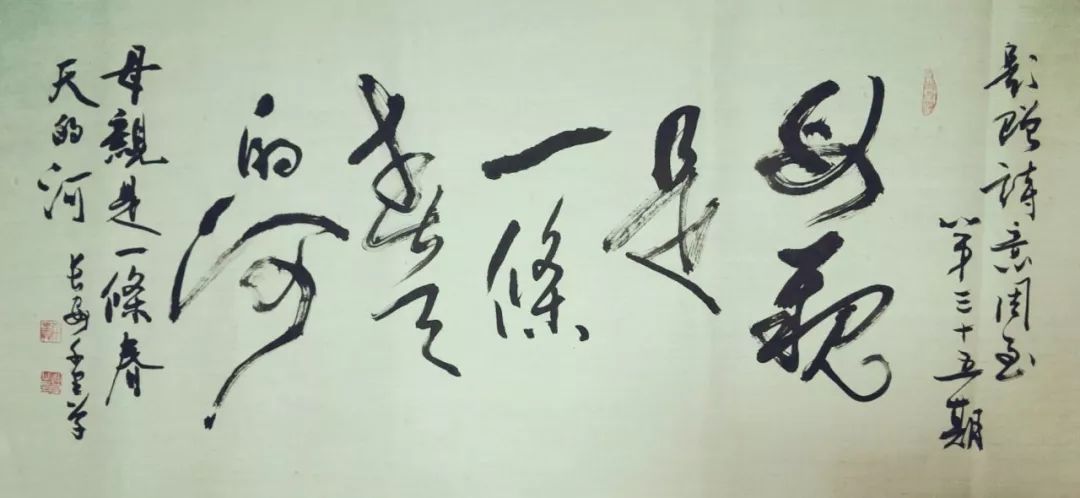 影赠詩意周至
第三十五期
母親
是
一條
春天
的河
母親是一條春
天的河
長安